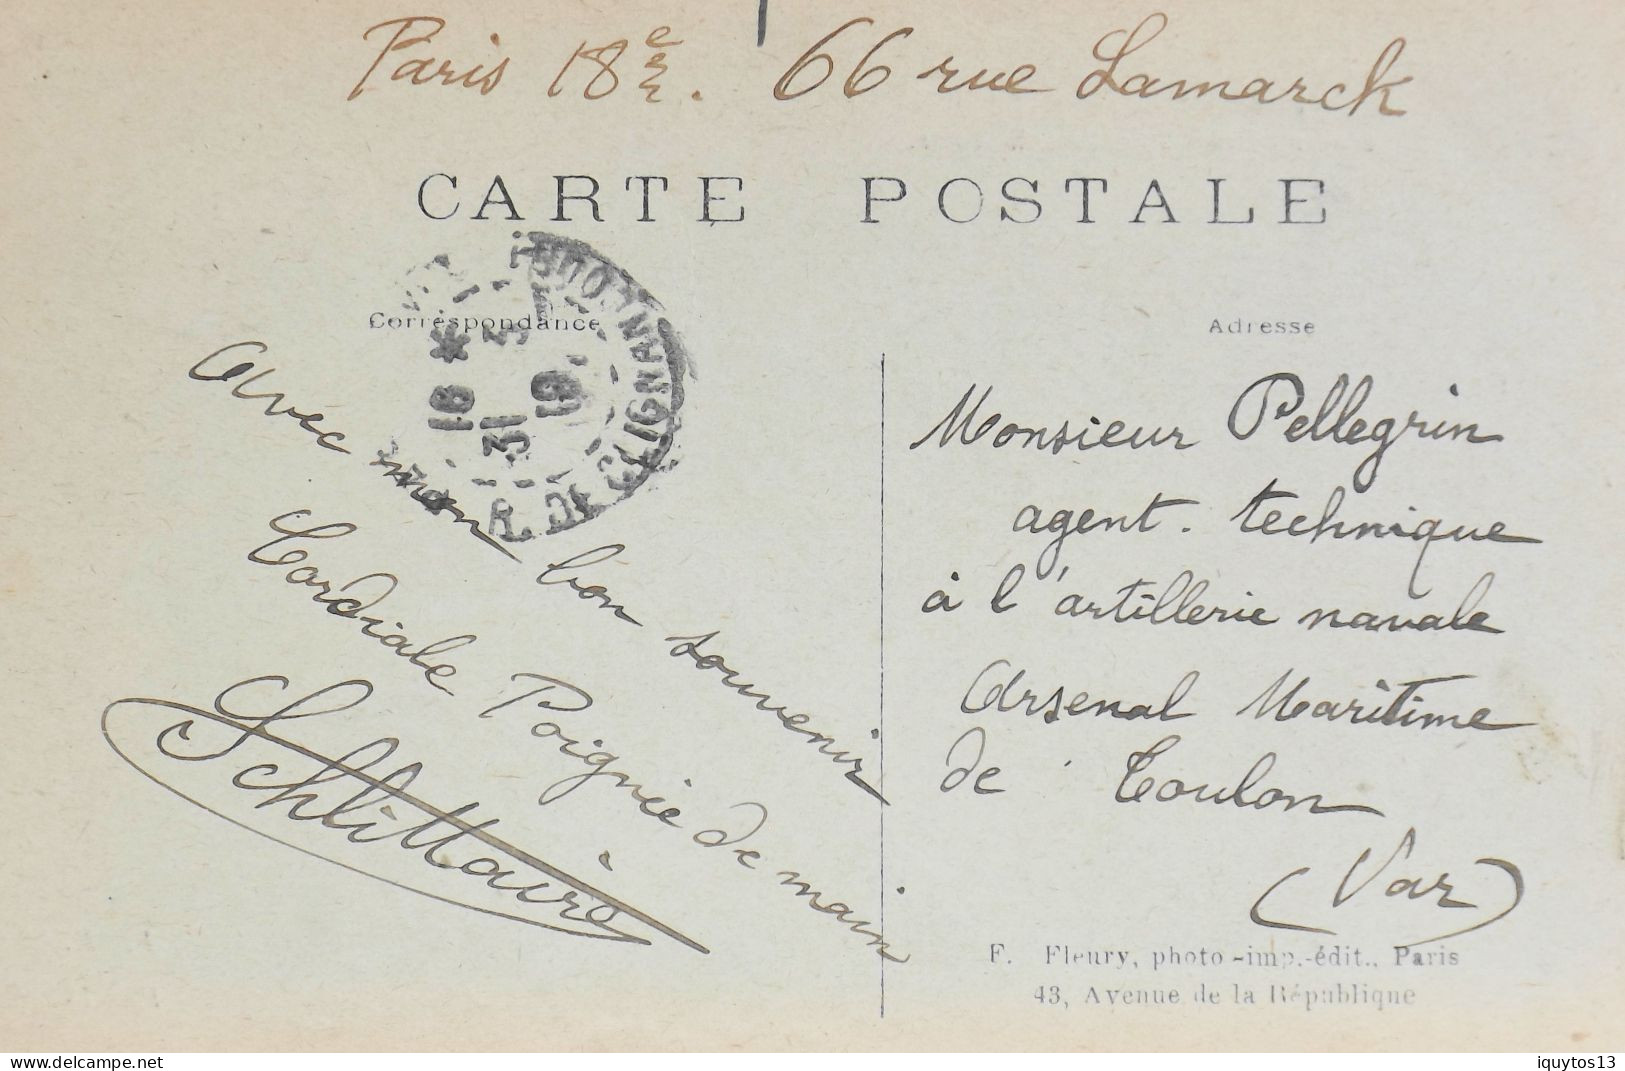 Paris 18e arr. 66 rue Lamarck
CARTE POSTALE
Correspondance
Adresse
18 *
31
19
R. DE CLIGNANCOURT
Avec mon bon souvenir
Cordiale Poignée de main
Schlittaire
Monsieur Pellegrin
agent technique
à l'artillerie navale
Arsenal Maritime
de Toulon
(Var)
F. Fleury, photo-imp.-édit., Paris
43, Avenue de la République
www.delcampe.net
iquytos13